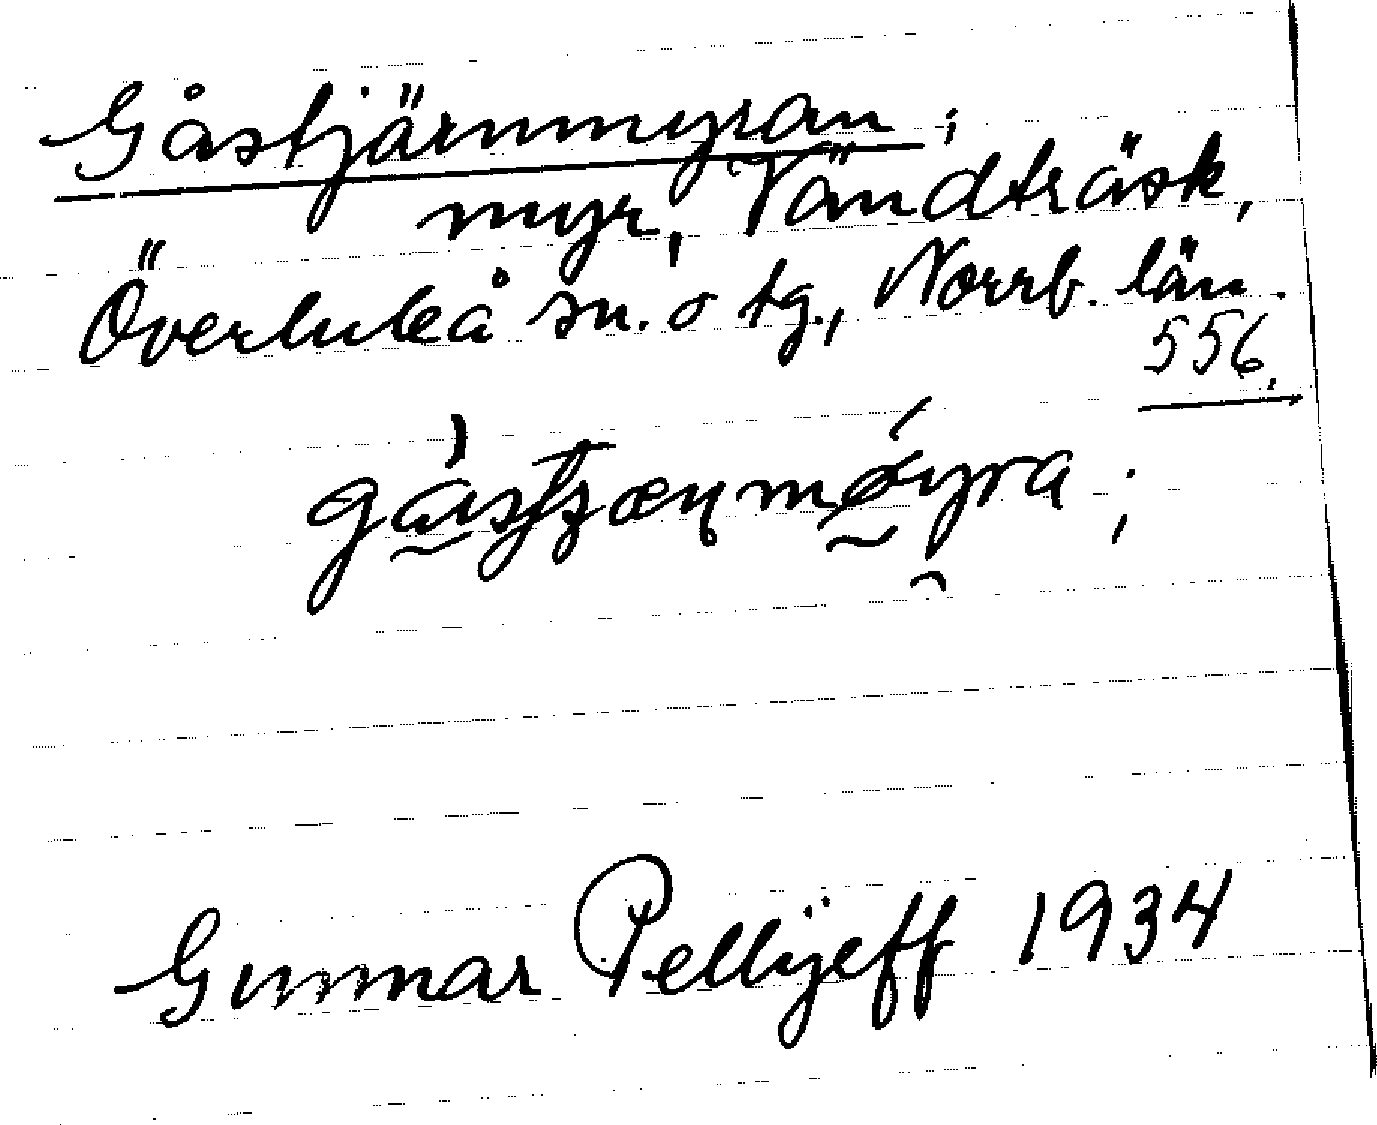 Gåstjärnmyran;
myr, Vändträsk,
Överluleå sn. o tg., Norrb. län.
556.
Gunnar Pellijeff 1934